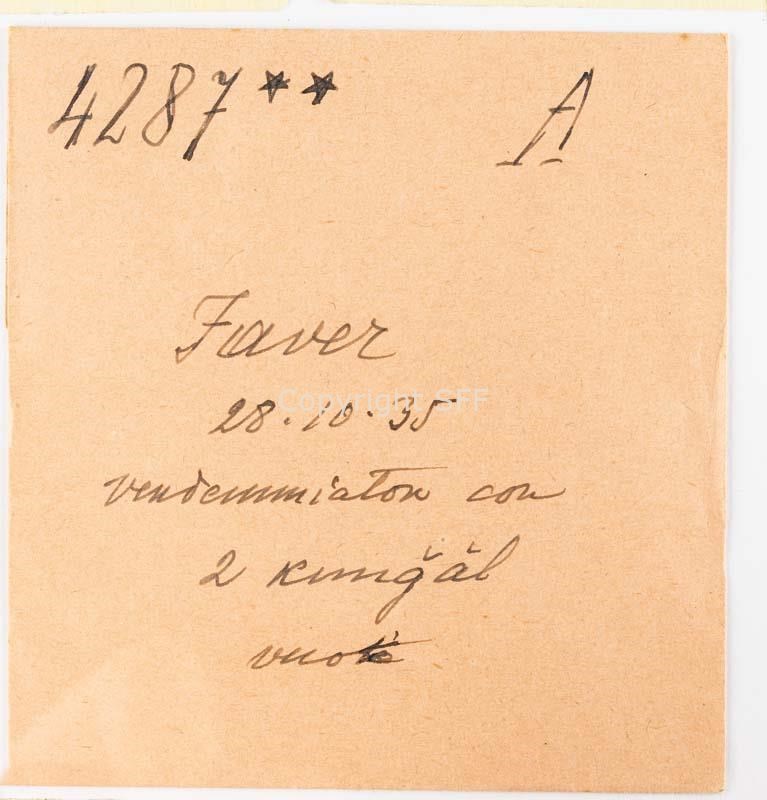 4287** A
Faver
28.10.35
Copyright SFF
vendemmiatore con
2 kunğăl
vuoti